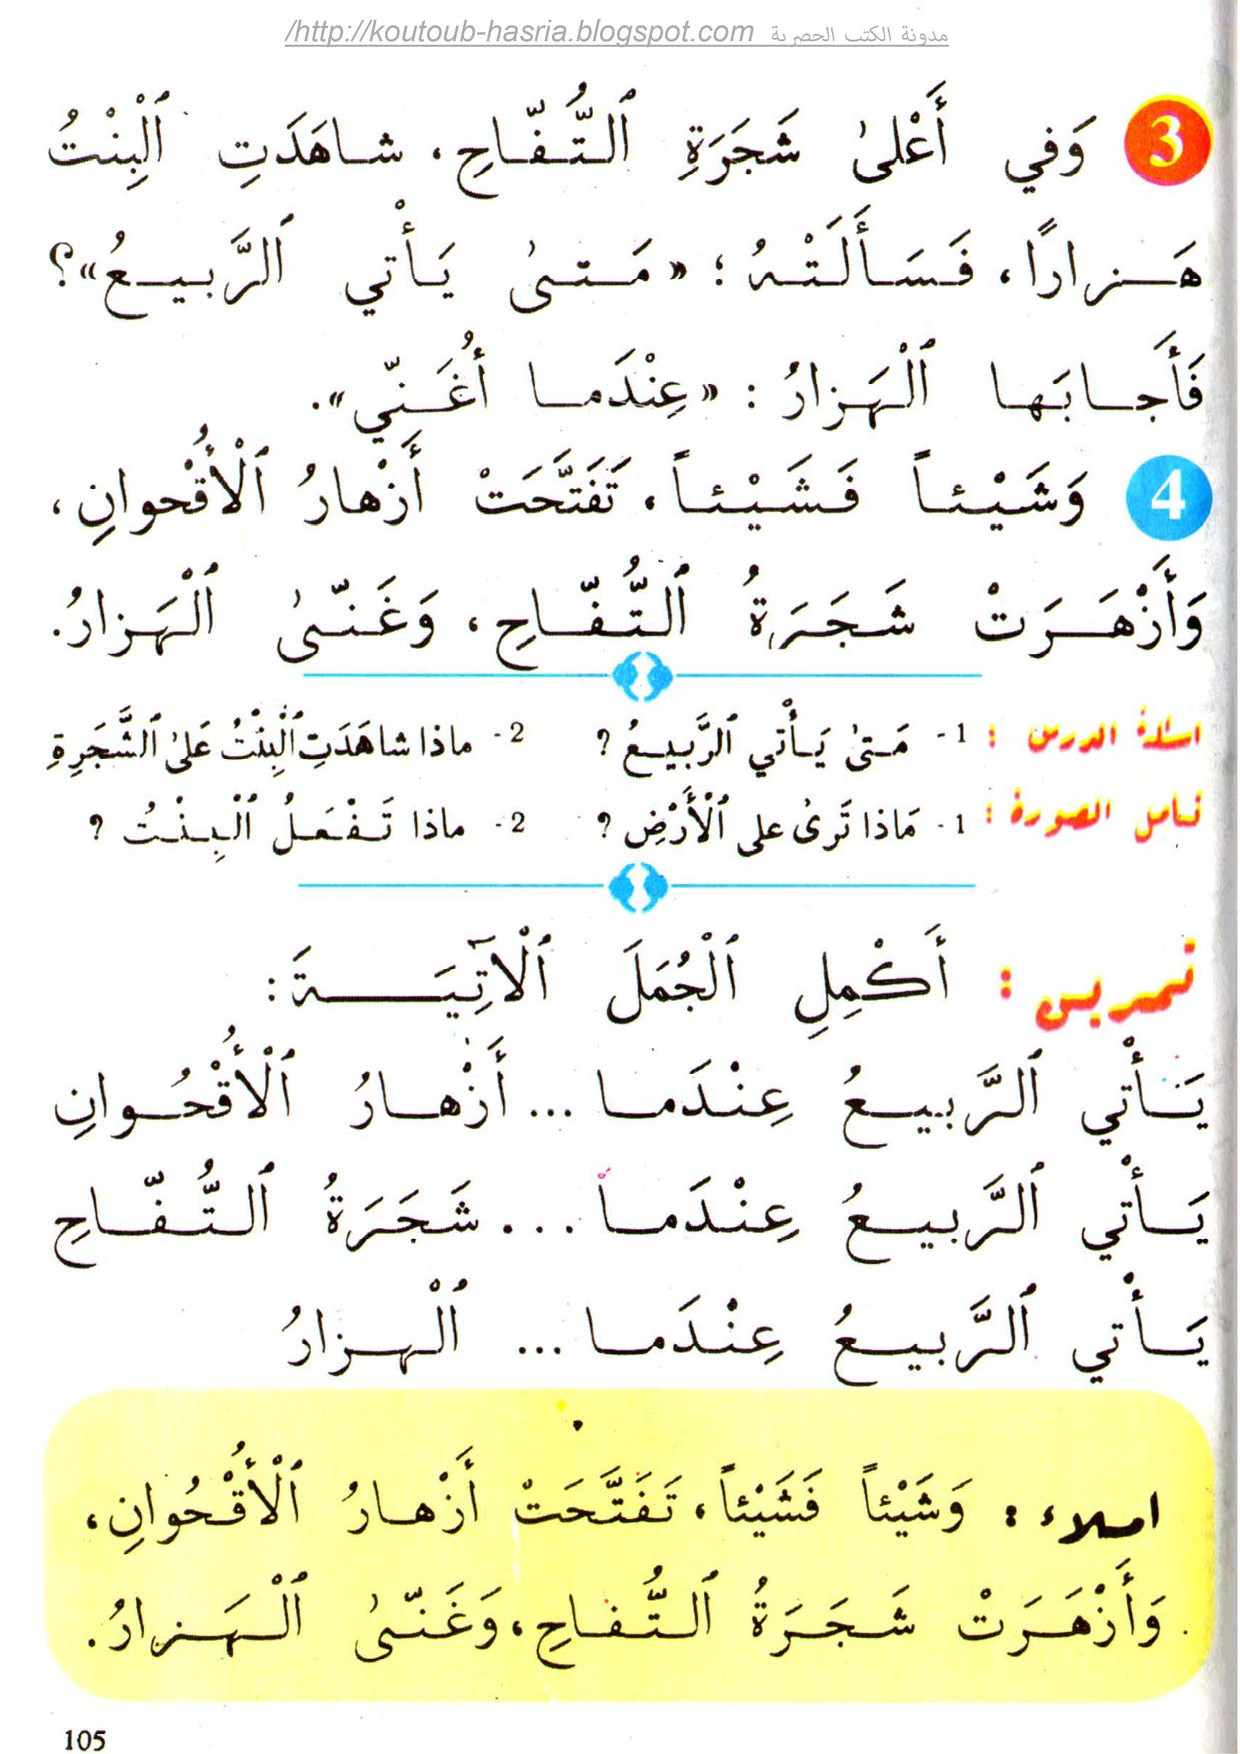 مدونة الكتب الحصرية http://koutoub-hasria.blogspot.com/
3 وَفي أَعْلىٰ شَجَرَةِ ٱلتُّفّاحِ، شاهَدَتِ ٱلْبِنْتُ
هَزارًا، فَسَأَلَتْهُ : «مَتىٰ يَأْتي ٱلرَّبيعُ»؟
فَأَجابَها ٱلْهَزارُ : «عِنْدَما أُغَنّي».
4 وَشَيْئاً فَشَيْئاً، تَفَتَّحَتْ أَزْهارُ ٱلْأُقْحوانِ،
وَأَزْهَرَتْ شَجَرَةُ ٱلتُّفّاحِ، وَغَنّىٰ ٱلْهَزارُ.
اسئلة الدرس : 1 - مَتىٰ يَأْتي ٱلرَّبيعُ ؟ 2 - ماذا شاهَدَتِ ٱلْبِنْتُ عَلىٰ ٱلشَّجَرَةِ
تأمل الصورة : 1 - مَاذا تَرىٰ على ٱلْأَرْضِ ؟ 2 - ماذا تَفْعَلُ ٱلْبِنْتُ ؟
تمرين : أَكْمِلِ ٱلْجُمَلَ ٱلْآتِيَةَ:
يَأْتي ٱلرَّبيعُ عِنْدَما ... أَزْهارُ ٱلْأُقْحُوانِ
يَأْتي ٱلرَّبيعُ عِنْدَما ... شَجَرَةُ ٱلتُّفّاحِ
يَأْتي ٱلرَّبيعُ عِنْدَما ... ٱلْهزارُ
املاء : وَشَيْئاً فَشَيْئاً، تَفَتَّحَتْ أَزْهارُ ٱلْأُقْحُوانِ،
وَأَزْهَرَتْ شَجَرَةُ ٱلتُّفاحِ، وَغَنّىٰ ٱلْهَزارُ.
105